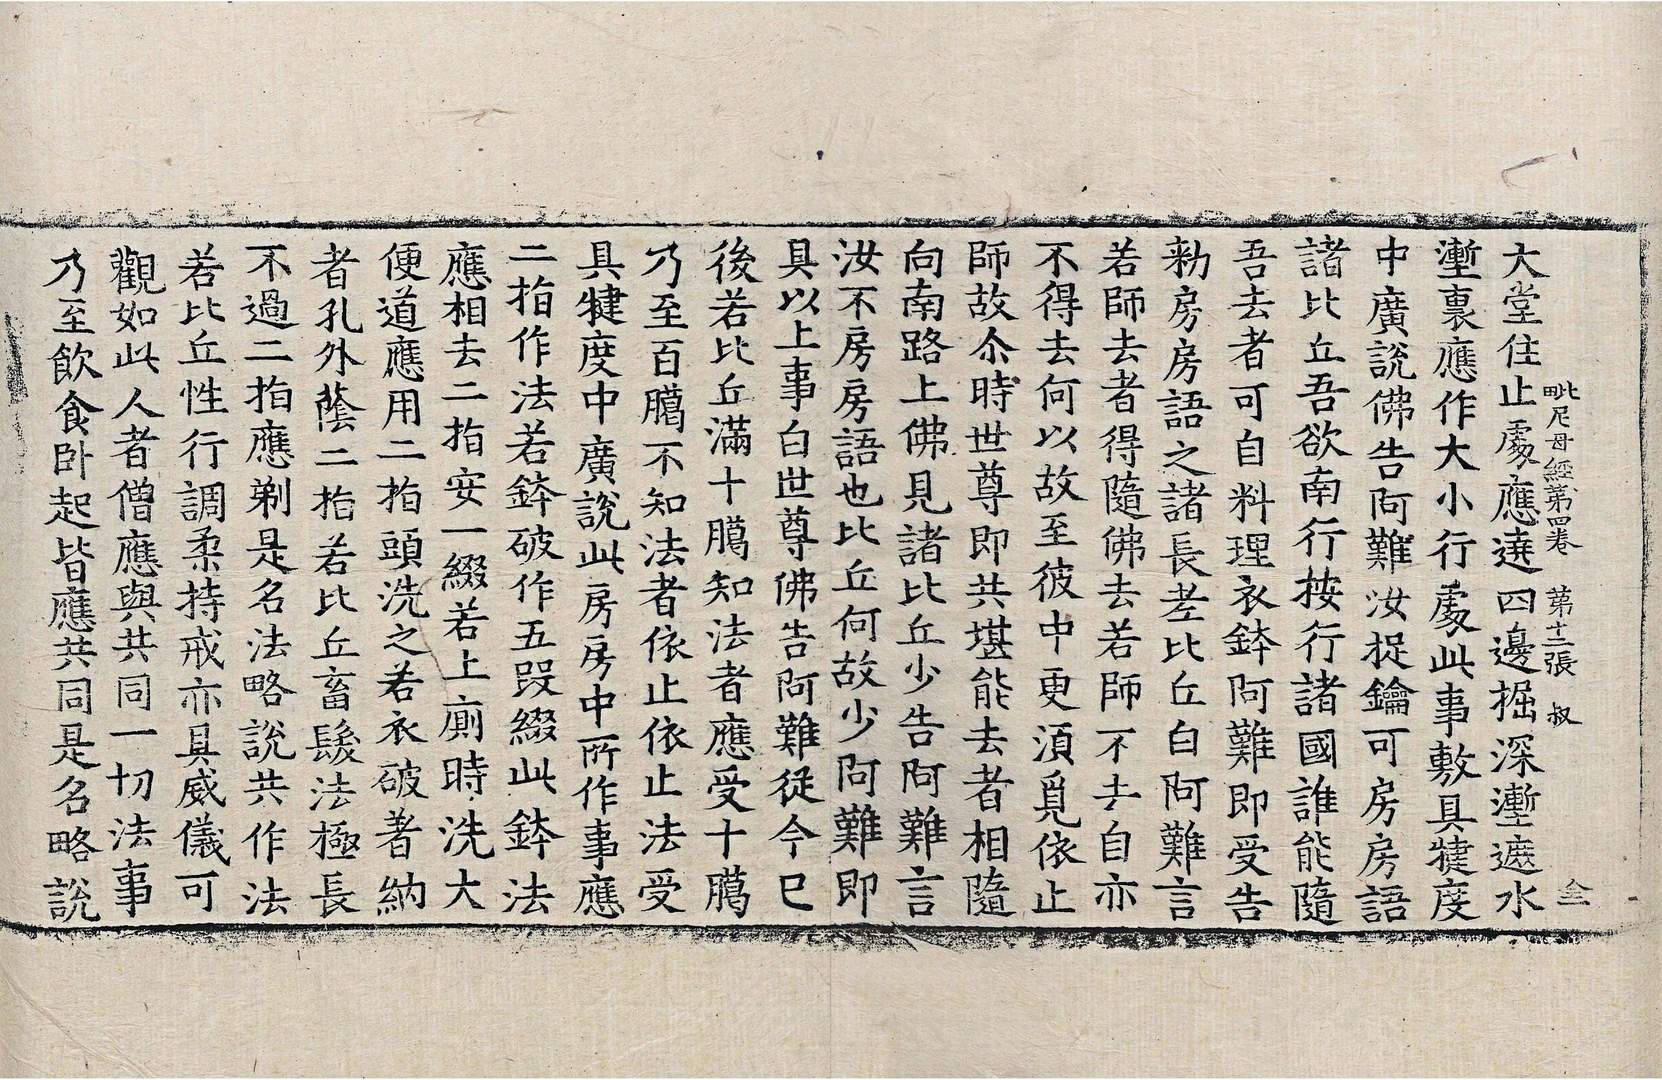 毗尼母經第四卷　第十二張　叔
仝
大堂住止處應遶四邊掘深壍遮水
壍裏應作大小行處此事敷具揵度
中廣說佛告阿難汝捉鑰可房房語
諸比丘吾欲南行按行諸國誰能隨
吾去者可自料理衣鉢阿難即受告
勑房房語之諸長老比丘白阿難言
若師去者得隨佛去若師不去自亦
不得去何以故至彼中更湏覓依止
師故尒時世尊即共堪能去者相隨
向南路上佛見諸比丘少告阿難言
汝不房房語也比丘何故少阿難即
具以上事白世尊佛告阿難從今已
後若比丘滿十臈知法者應受十臈
乃至百臈不知法者依止依止法受
具揵度中廣說此房房中所作事應
二指作法若鉢破作五段綴此鉢法
應相去二指安一綴若上廁時洗大
便道應用二指頭洗之若衣破著納
者孔外蔭二指若比丘畜髮法極長
不過二指應剃是名法略說共作法
若比丘性行調柔持戒亦具威儀可
觀如此人者僧應與共同一切法事
乃至飲食卧起皆應共同是名略說